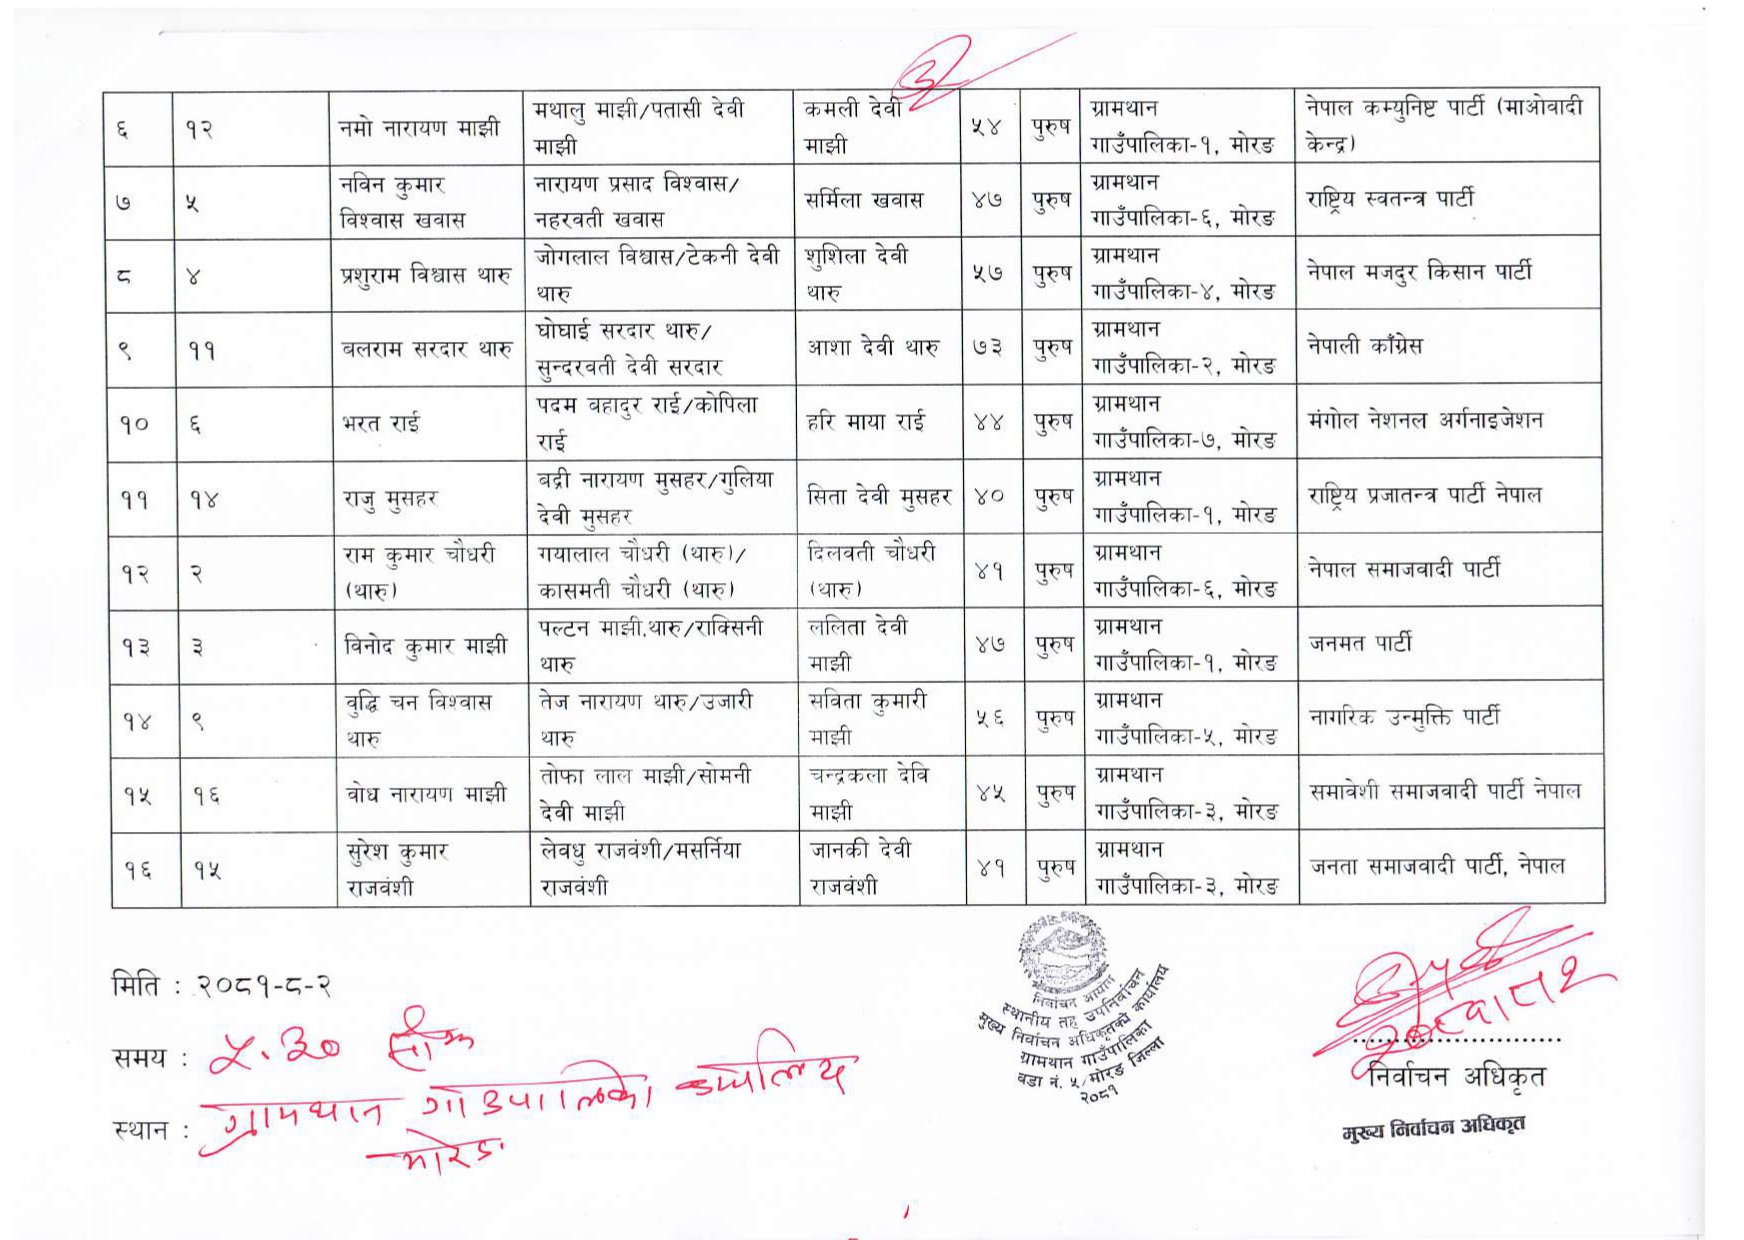 ६ १२ नमो नारायण माझी मथालु माझी/पतासी देवी माझी कमली देवी माझी ५४ पुरुष ग्रामथान गाउँपालिका-१, मोरङ नेपाल कम्युनिष्ट पार्टी (माओवादी केन्द्र)
७ ५ नविन कुमार विश्वास खवास नारायण प्रसाद विश्वास/नहरवती खवास सर्मिला खवास ४७ पुरुष ग्रामथान गाउँपालिका-६, मोरङ राष्ट्रिय स्वतन्त्र पार्टी
८ ४ प्रशुराम विश्वास थारु जोगलाल विश्वास/टेकनी देवी थारु शुशिला देवी थारु ५७ पुरुष ग्रामथान गाउँपालिका-४, मोरङ नेपाल मजदुर किसान पार्टी
९ ११ बलराम सरदार थारु घोघाई सरदार थारु/सुन्दरवती देवी सरदार आशा देवी थारु ७३ पुरुष ग्रामथान गाउँपालिका-२, मोरङ नेपाली काँग्रेस
१० ६ भरत राई पदम वहादुर राई/कोपिला राई हरि माया राई ४४ पुरुष ग्रामथान गाउँपालिका-७, मोरङ मंगोल नेशनल अर्गनाइजेशन
११ १४ राजु मुसहर बद्री नारायण मुसहर/गुलिया देवी मुसहर सिता देवी मुसहर ४० पुरुष ग्रामथान गाउँपालिका-१, मोरङ राष्ट्रिय प्रजातन्त्र पार्टी नेपाल
१२ २ राम कुमार चौधरी (थारु) गयालाल चौधरी (थारु)/कासमती चौधरी (थारु) दिलवती चौधरी (थारु) ४१ पुरुष ग्रामथान गाउँपालिका-६, मोरङ नेपाल समाजवादी पार्टी
१३ ३ विनोद कुमार माझी पल्टन माझी.थारु/राक्सिनी थारु ललिता देवी माझी ४७ पुरुष ग्रामथान गाउँपालिका-१, मोरङ जनमत पार्टी
१४ ९ वुद्धि चन विश्वास थारु तेज नारायण थारु/उजारी थारु सविता कुमारी माझी ५६ पुरुष ग्रामथान गाउँपालिका-५, मोरङ नागरिक उन्मुक्ति पार्टी
१५ १६ वोध नारायण माझी तोफा लाल माझी/सोमनी देवी माझी चन्द्रकला देवि माझी ४५ पुरुष ग्रामथान गाउँपालिका-३, मोरङ समावेशी समाजवादी पार्टी नेपाल
१६ १५ सुरेश कुमार राजवंशी लेवधु राजवंशी/मसर्निया राजवंशी जानकी देवी राजवंशी ४१ पुरुष ग्रामथान गाउँपालिका-३, मोरङ जनता समाजवादी पार्टी, नेपाल
मिति : २०८१-८-२
समय : ५.३०
स्थान : ग्रामथान गाउँपालिका कार्यालय
मोरङ
निर्वाचन आयोग
स्थानीय तह उपनिर्वाचन
मुख्य निर्वाचन अधिकृतको कार्यालय
ग्रामथान गाउँपालिका
वडा नं. ५, मोरङ जिल्ला
२०८१
निर्वाचन अधिकृत
मुख्य निर्वाचन अधिकृत